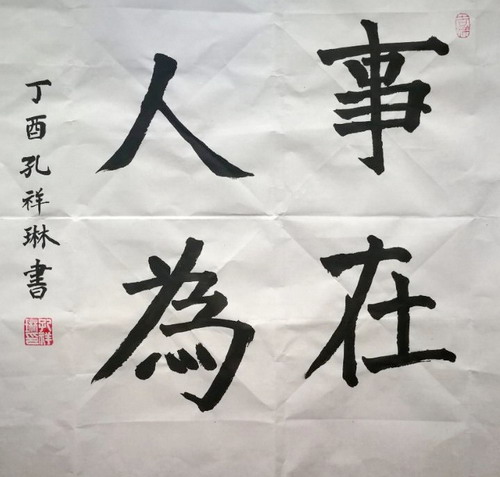 事在
人為
丁酉孔祥琳書